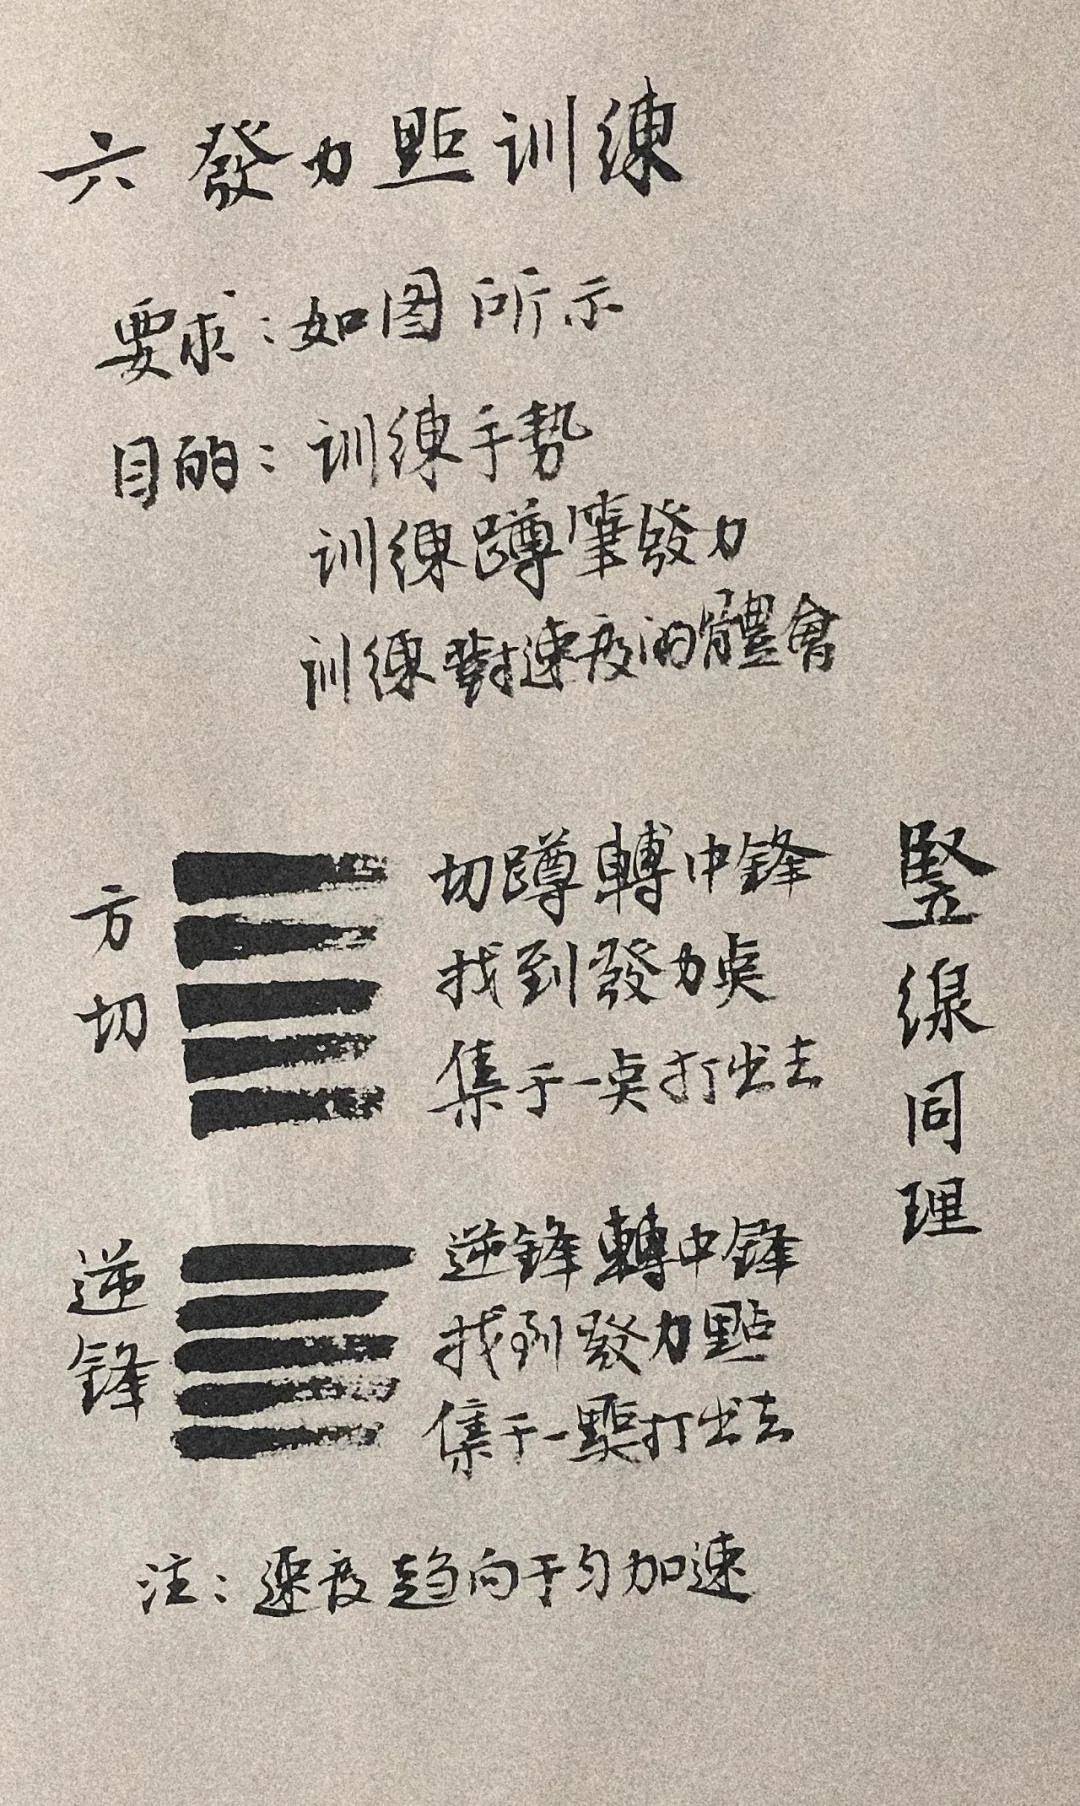 六 發力點训練
要求：如图所示
目的：训練手势
训練蹲筆發力
训練對速度的體會
方切
切蹲轉中鋒
找到發力点
集于一点打出去
逆鋒
逆鋒轉中鋒
找到發力點
集于一點打出去
竪線同理
注：速度趋向于匀加速